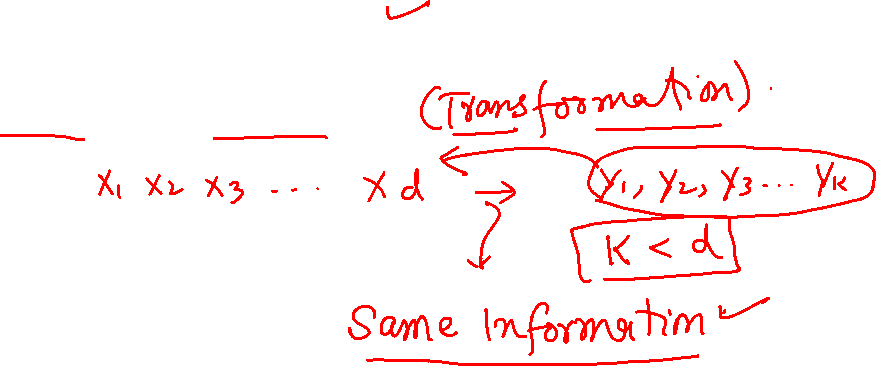 (Transformation).
x1 x2 x3 ... x d → y1, y2, y3... yk
K < d
Same Information